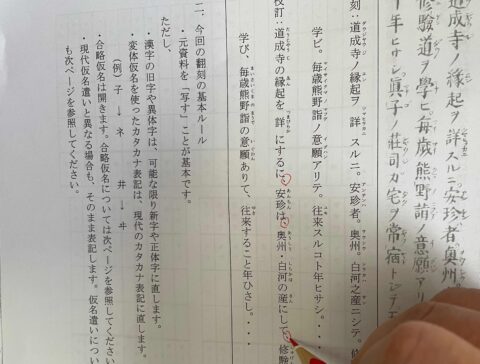 道成寺ノ縁起ヲ詳スルニ安珍者奥州。
修験道ヲ學ヒ毎歳熊野詣ノ意願アリ
年ヒサシ眞子ノ荘司ガ宅ヲ常宿トシテ
刻：道成寺ノ縁起ヲ詳スルニ。安珍者。奥州。白河之産ニシテ。修
学ビ。毎歳熊野詣ノ意願アリテ。往来スルコト年ヒサシ。・・・
校訂：道成寺の縁起を詳にするに、安珍は、奥州・白河の産にして、修験
学び、毎歳熊野詣の意願ありて、往来すること年ひさし。・・・
二、今回の翻刻の基本ルール
・元資料を「写す」ことが基本です。
ただし、
・漢字の旧字や異体字は、可能な限り新字や正体字に直します。
・変体仮名を使ったカタカナ表記は、現代のカタカナ表記に直します。
（例）子→ネ　井→ヰ
・合略仮名は開きます。合略仮名については次ページを参照してください
・現代仮名遣いと異なる場合も、そのまま表記します。仮名遣いについ
も次ページを参照してください。